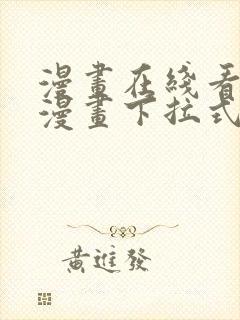 漫畫在綫看
漫畫下拉式
黃進發